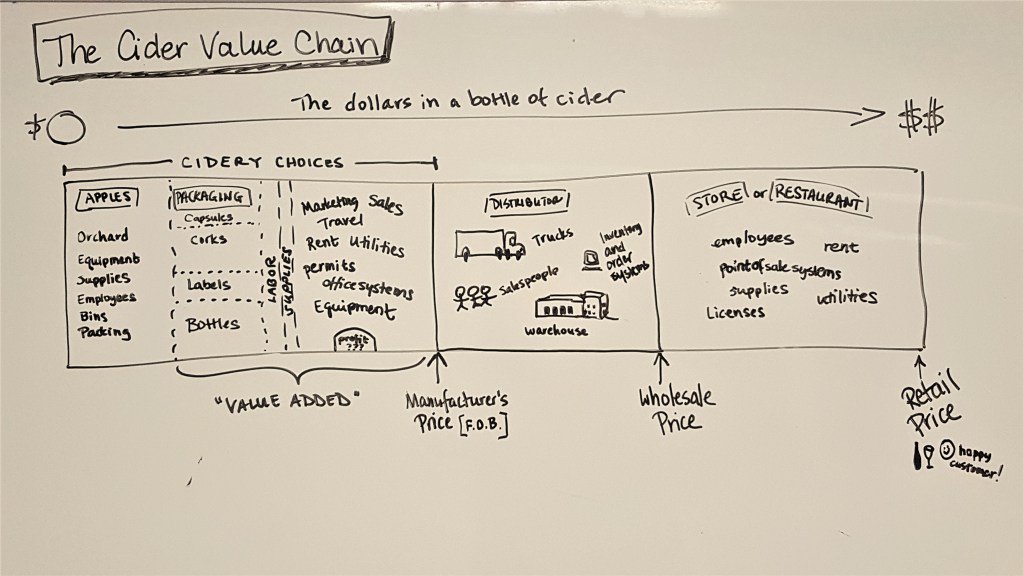 The Cider Value Chain
The dollars in a bottle of cider
$
$$
CIDERY CHOICES
APPLES
Orchard
Equipment
Supplies
Employees
Bins
Packing
PACKAGING
Capsules
Corks
Labels
Bottles
LABOR
SUPPLIES
Marketing Sales
Travel
Rent Utilities
permits
office systems
Equipment
profit
???
DISTRIBUTOR
Trucks
Inventory
and
order
systems
Salespeople
warehouse
STORE or RESTAURANT
employees
rent
point of sale systems
supplies
utilities
Licenses
"VALUE ADDED"
Manufacturer's
Price [F.O.B.]
Wholesale
Price
Retail
Price
happy
customer!